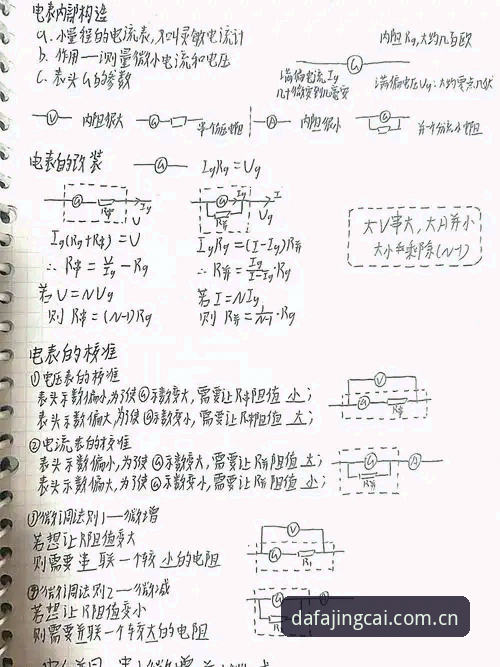 电表内部构造
a. 小量程的电流表,不叫灵敏电流计
b. 作用——测量微小电流和电压
c. 表头G的参数
内阻Rg,大约几百欧
G
满偏电流Ig
几十微安到几毫安
满偏电压Ug:大约零点几伏
V 内阻很大
G
A 内阻很小
G
电表的改装
G
IgRg=Ug
G R串 Ig U
G Ig I R并 Ug
Ig(Rg+R串)=U
∴ R串=U/Ig-Rg
若 U=NUg
则 R串=(N-1)Rg
IgRg=(I-Ig)R并
∴ R并=Ig/I-Ig·Rg
若 I=NIg
则 R并=1/N-1·Rg
大V串大,大A并小
大小乘除(N-1)
电表的校准
①电压表的校准
表头示数偏小,为了使G示数变大,需要让R串阻值 小;
表头示数偏大,为了使G示数变小,需要让R串阻值 大;
V
G R串
②电流表的校准
表头示数偏小,为了使G示数变大,需要让R并阻值 大;
表头示数偏大,为了使G示数变小,需要让R并阻值 小;
G A
R并
③微调法则1——微增
若想让R阻值变大
则需要 串 联一个较 小的电阻
V
G R
④微调法则2——微减
若想让R阻值变小
则需要并联一个较大的电阻
G
dafajingcai.com.cn